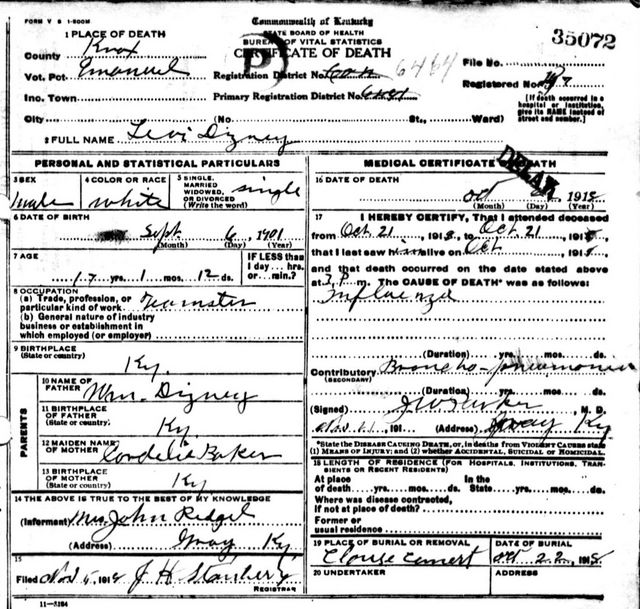 FORM V S 1-500M
Commonwealth of Kentucky
STATE BOARD OF HEALTH
BUREAU OF VITAL STATISTICS
CERTIFICATE OF DEATH
35072
1 PLACE OF DEATH
County Knox
Vot. Pct. Emanuel
Inc. Town
City (No. St., Ward)
Registration District No. 6464
Primary Registration District No.
File No.
Registered No.
[If death occurred in a
hospital or institution,
give its NAME instead of
street and number.]
2 FULL NAME Levi Dizney
PERSONAL AND STATISTICAL PARTICULARS
3 SEX
male
4 COLOR OR RACE
white
5 SINGLE,
MARRIED
WIDOWED,
OR DIVORCED
(Write the word)
single
6 DATE OF BIRTH
Sept 6 1901
(Month) (Day) (Year)
7 AGE
17 yrs. 1 mos. 12 ds.
IF LESS than
1 day... hrs.
or... min.?
8 OCCUPATION
(a) Trade, profession, or
particular kind of work Teamster
(b) General nature of industry
business or establishment in
which employed (or employer)
9 BIRTHPLACE
(State or country)
Ky.
PARENTS
10 NAME OF
FATHER
Wm. Dizney
11 BIRTHPLACE
OF FATHER
(State or country)
Ky.
12 MAIDEN NAME
OF MOTHER
Cordelia Baker
13 BIRTHPLACE
OF MOTHER
(State or country)
Ky
14 THE ABOVE IS TRUE TO THE BEST OF MY KNOWLEDGE
(Informant) Mrs John
(Address) Gray Ky
15
Filed 191 J H
REGISTRAR
11-3184
MEDICAL CERTIFICATE OF DEATH
DELAY
16 DATE OF DEATH
Oct 1918
(Month) (Day) (Year)
17 I HEREBY CERTIFY, That I attended deceased
from Oct 21 1918, to Oct 21, 1918
that I last saw him alive on Oct 191
and that death occurred on the date stated above
at m. The CAUSE OF DEATH* was as follows:
Influenza
(Duration) yrs. mos. ds.
Contributory Broncho-pneumonia
(SECONDARY)
(Duration) yrs. mos. ds.
(Signed) J W Parker, M. D.
191 (Address) Gray Ky
*State the DISEASE CAUSING DEATH, or, in deaths from VIOLENT CAUSES state
(1) MEANS OF INJURY; and (2) whether ACCIDENTAL, SUICIDAL OR HOMICIDAL.
18 LENGTH OF RESIDENCE (FOR HOSPITALS, INSTITUTIONS, TRANSIENTS OR RECENT RESIDENTS)
At place In the
of death yrs. mos. ds. State yrs. mos. ds.
Where was disease contracted,
if not at place of death?
Former or
usual residence
19 PLACE OF BURIAL OR REMOVAL
DATE OF BURIAL
Oct 22, 1918
20 UNDERTAKER
ADDRESS